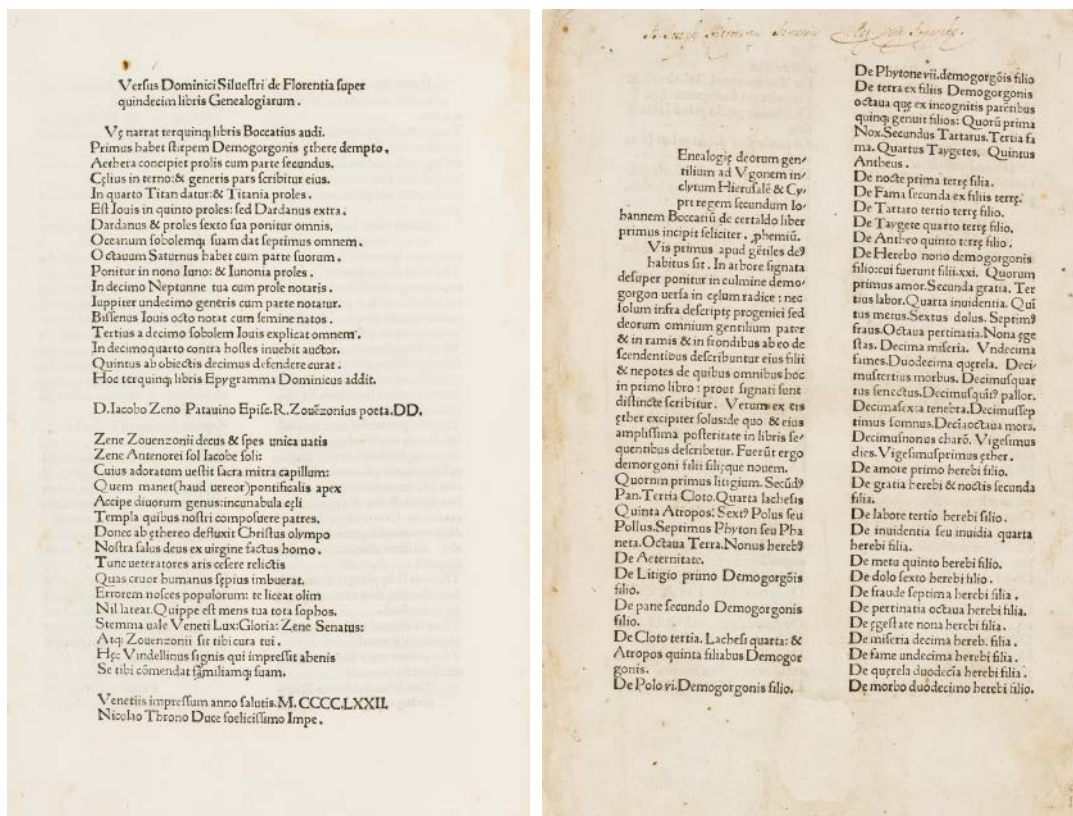 Versus Dominici Siluestri de Florentia super
quindecim libris Genealogiarum.
Vę narrat terquinq; libris Boccatius audi.
Primus habet stirpem Demogorgonis ęthere dempto.
Aethera concipiet prolis cum parte secundus.
Cęlius in terno: & generis pars scribitur eius.
In quarto Titan datur: & Titania proles.
Est Iouis in quinto proles: sed Dardanus extra.
Dardanus & proles sexto sua ponitur omnis.
Oceanum sobolemq; suam dat septimus omnem.
Octauum Saturnus habet cum parte suorum.
Ponitur in nono Iuno: & Iunonia proles.
In decimo Neptunne tua cum prole notaris.
Iuppiter undecimo generis cum parte notatur.
Bissenus Iouis octo notat cum semine natos.
Tertius a decimo sobolem Iouis explicat omnem.
In decimoquarto contra hostes inuehit auctor.
Quintus ab obiectis decimus defendere curat.
Hoc terquinq; libris Epygramma Dominicus addit.
D. Iacobo Zeno Patauino Episc. R. Zouēzonius poeta. DD.
Zene Zouenzonii decus & spes unica uatis
Zene Antenorei sol Iacobe soli:
Cuius adoratum uestit sacra mitra capillum:
Quem manet (haud uereor) pontificalis apex
Accipe diuorum genus: incunabula cęli
Templa quibus nostri composuere patres.
Donec ab ęthereo defluxit Christus olympo
Nostra salus deus ex uirgine factus homo.
Tunc ueteratores aris cesere relictis
Quas cruor humanus sępius imbuerat.
Errorem nosces populorum: te liceat olim
Nil lateat. Quippe est mens tua tota sophos.
Stemma uale Veneti Lux: Gloria: Zene Senatus:
Atq; Zouenzonii sit tibi cura tui.
Hęc Vindellinus signis qui impressit ahenis
Se tibi cōmendat familiamq; suam.
Venetiis impressum anno salutis. M. CCCC. LXXII.
Nicolao Throno Duce foelicissimo Impe.
Enealogię deorum gen⸗
tilium ad Vgonem in⸗
clytum Hierusalē & Cy⸗
pri regem secundum Io⸗
hannem Boccatiū de certaldo liber
primus incipit feliciter. phemiū.
Vis primus apud gētiles deꝰ
habitus sit. In arbore signata
desuper ponitur in culmine demo⸗
gorgon uersa in cęlum radice: nec
solum infra descriptę progeniei sed
deorum omnium gentilium pater
& in ramis & in frondibus ab eo de
scendentibus describuntur eius filii
& nepotes de quibus omnibus hoc
in primo libro: prout signati sunt
distincte scribitur. Verum ex eis
ęther excipitur solus: de quo & eius
amplissima posteritate in libris se⸗
quentibus describetur. Fuerūt ergo
demorgoni filii filięque nouem.
Quorum primus litigium. Secūdꝰ
Pan. Tertia Cloto. Quarta lachesis
Quinta Atropos: Sextꝰ Polus seu
Pollus. Septimus Phyton seu Pha
neta. Octaua Terra. Nonus herebꝰ
De Aeternitate.
De Litigio primo Demogorgōis
filio.
De pane secundo Demogorgonis
filio.
De Cloto tertia. Lachesi quarta: &
Atropos quinta filiabus Demogor
gonis.
De Polo vi. Demogorgonis filio.
De Phytone vii. demogorgōis filio
De terra ex filiis Demogorgonis
octaua quę ex incognitis parētibus
quinq; genuit filios: Quorū prima
Nox. Secundus Tartarus. Tertia fa
ma. Quartus Taygetes. Quintus
Antheus.
De nocte prima terrę filia.
De Fama secunda ex filiis terrę.
De Tartaro tertio terrę filio.
De Taygete quarto terrę filio.
De Antheo quinto terrę filio.
De Herebo nono demogorgonis
filio: cui fuerunt filii. xxi. Quorum
primus amor. Secunda gratia. Ter
tius labor. Quarta inuidentia. Quī
tus metus. Sextus dolus. Septimꝰ
fraus. Octaua pertinatia. Nona ęge
stas. Decima miseria. Vndecima
fames. Duodecima quęrela. Deci⸗
mustertius morbus. Decimusquar
tus senectus. Decimusquītꝰ pallor.
Decimasexta tenebra. Decimussep
timus somnus. Deciaoctaua mora.
Decimusnonus charō. Vigesimus
dies. Vigesimusprimus ęther.
De amore primo herebi filio.
De gratia herebi & noctis secunda
filia.
De labore tertio herebi filio.
De inuidentia seu inuidia quarta
herebi filia.
De metu quinto herebi filio.
De dolo sexto herebi filio.
De fraude septima herebi filia.
De pertinatia octaua herebi filia.
De ęgestate nona herebi filia.
De miseria decima hereb. filia.
De fame undecima herebi filia.
De quęrela duodecīa herebi filia.
De morbo duodecimo herebi filio.